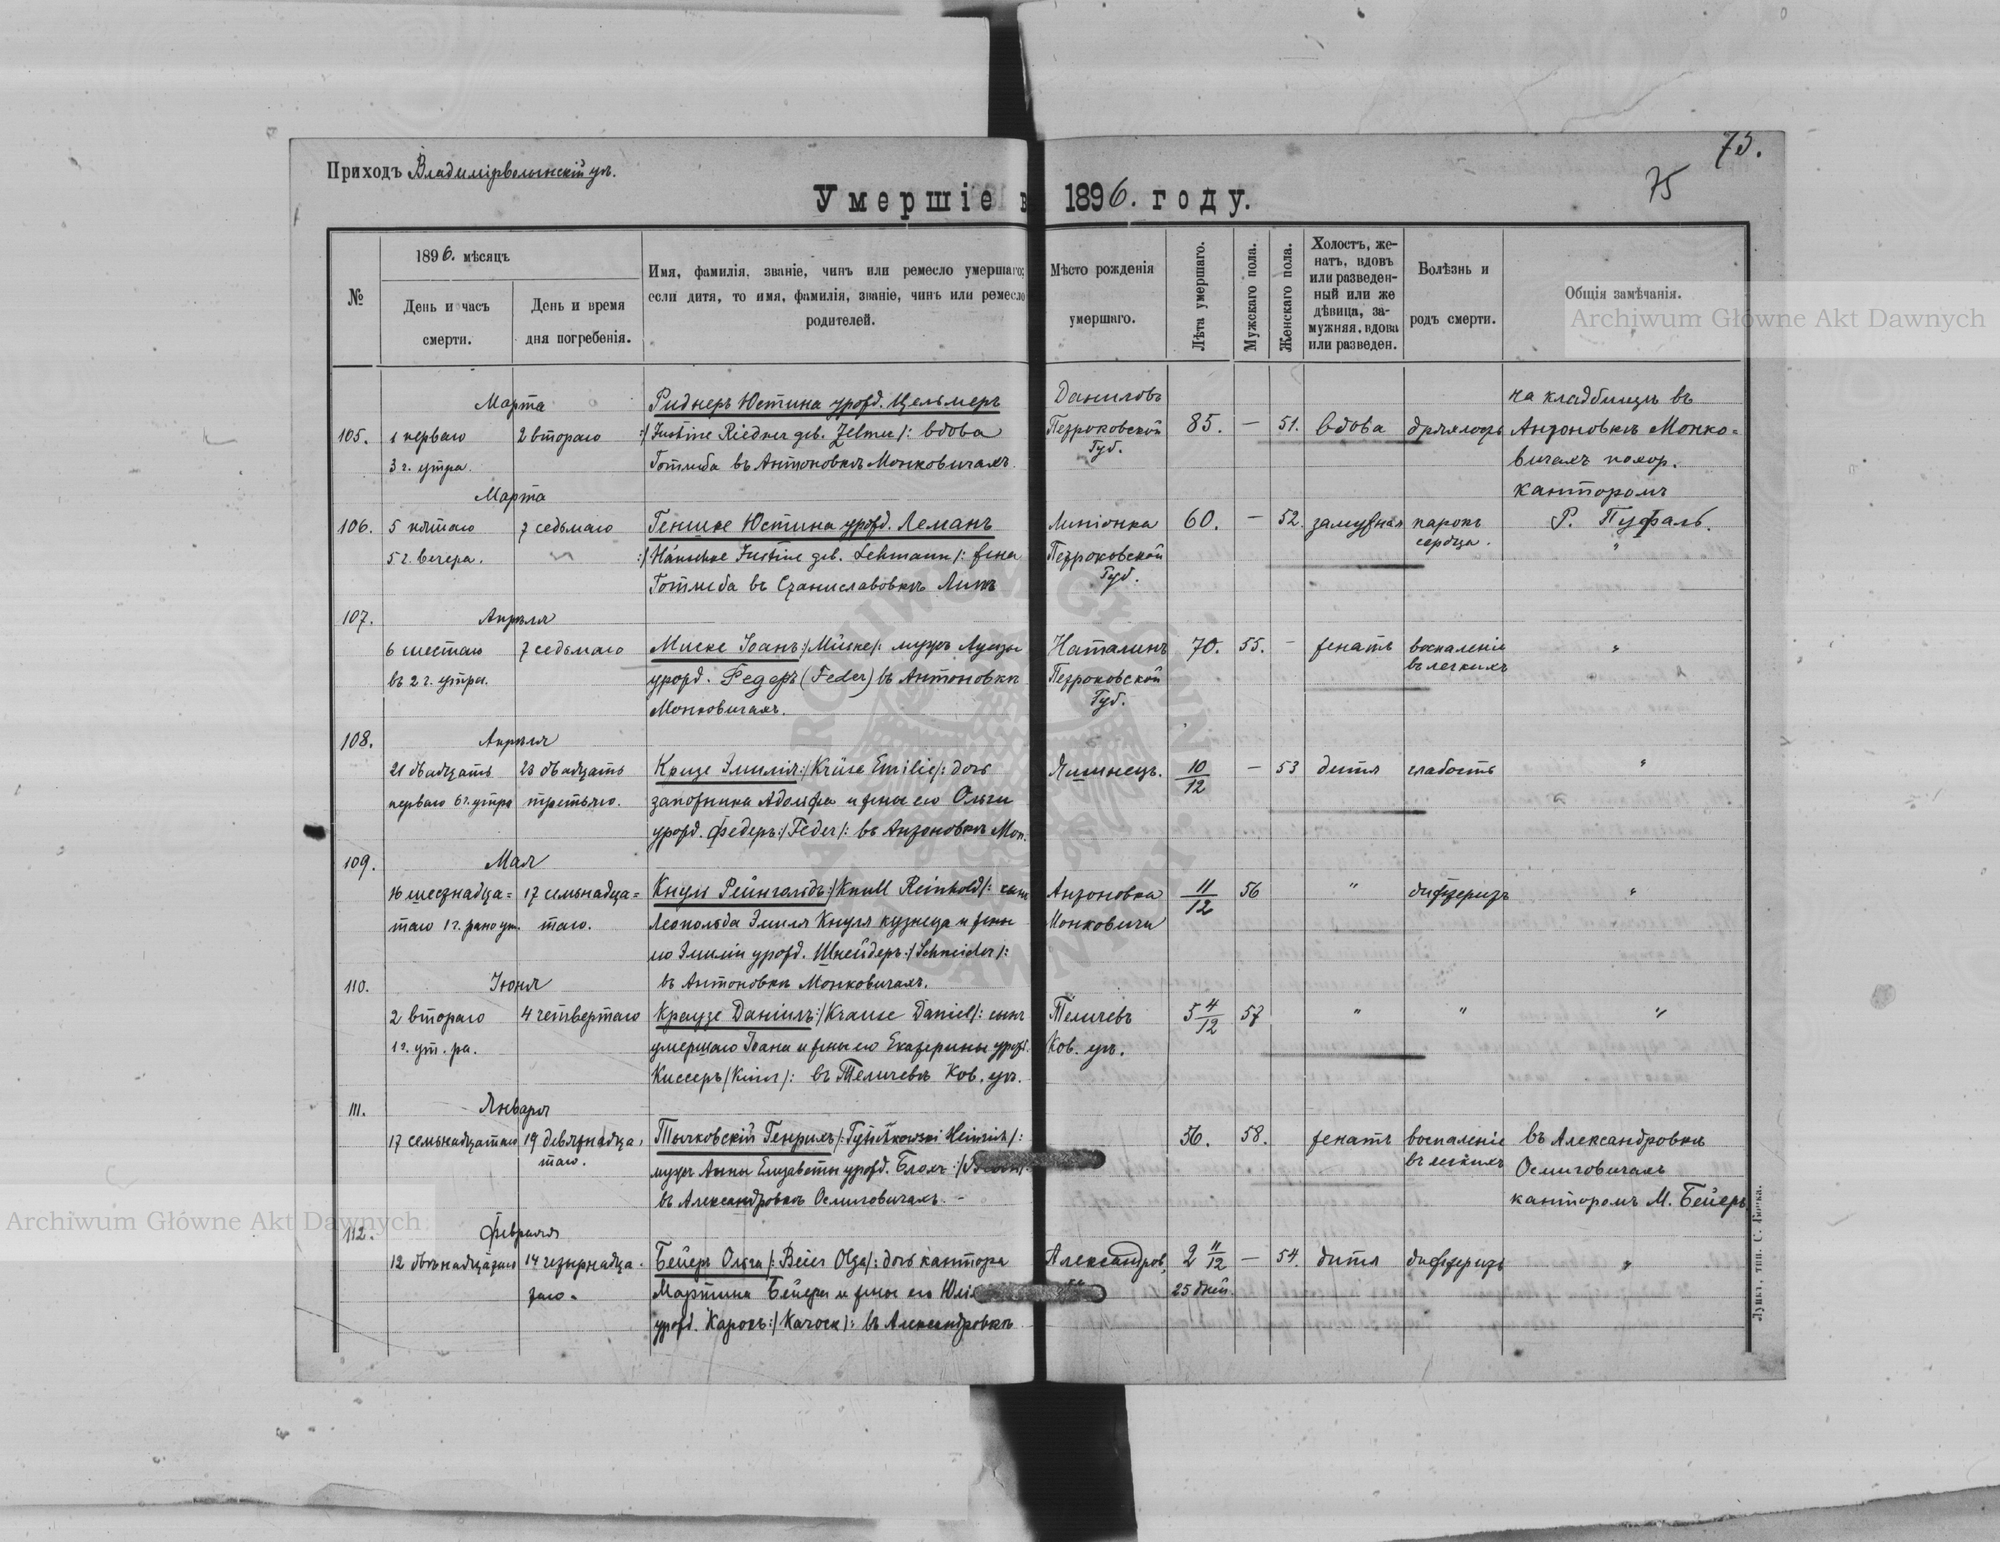 75.
75
Приходъ Владимірволынскій уѣ.
Умершіе в 1896. году.
№
1896. мѣсяцъ
День и часъ смерти.
День и время дня погребенія.
Имя, фамилія, званіе, чинъ или ремесло умершаго;
если дитя, то имя, фамилія, званіе, чинъ или ремесло
родителей.
Мѣсто рожденія
умершаго.
Лѣта умершаго.
Мужскаго пола.
Женскаго пола.
Холостъ, же-
натъ, вдовъ
или разведен-
ный или же
дѣвица, за-
мужняя, вдова
или разведен.
Болѣзнь и
родъ смерти.
Общія замѣчанія.
Archiwum Główne Akt Dawnych
Марта Риднеръ Юстина урожд. Цельмеръ Даниловъ на кладбищѣ въ
105. 1 перваго 2 втораго :/Justine Riedner geb. Zelmer/: вдова Петроковской 85. — 51. вдова дряхлость Антоновкѣ Монко=
3 ч. утра. Готлиба въ Антоновкѣ Монковичахъ. Губ. вичахъ похор.
Марта канторомъ
106. 5 пятаго 7 седьмаго Генике Юстина урожд. Леманъ 60. — 52. замужняя парокъ Р. Пуфаль.
5 ч. вечера. Justine geb. Lehmann/: жена Петроковской сердца. "
Готлиба въ Станиславовкѣ Губ.
107. Апрѣля
6 шестаго 7 седьмаго Миске Іоанъ:/Miske/: мужъ Луизы Наталинъ 70. 55. — женатъ воспаленіе "
въ 2 ч. утра. урожд. Федеръ (Feder) въ Антоновкѣ Петроковской въ легкихъ
Монковичахъ. Губ.
108. Апрѣля
21 двадцать 23 двадцать Эмилія:/Krüse Emilie/: дочь 10/12 — 53 дитя слабость "
перваго 6 ч. утра третьяго. Адольфа и жены его Ольги
урожд. Федеръ:/Feder/: въ Антоновкѣ Мон.
109. Мая
16 шестнадца= 17 семьнадца= Кнуль Рейнгольдъ:/Knull Reinhold/: сынъ Антоновка 11/12 56 " дифтеритъ "
таго 1 ч. таго. Леопольда Эмиля Кнуля кузнеца и жены Монковичи
его Эмиліи урожд. Шнейдеръ:/Schneider/:
110. Іюня въ Антоновкѣ Монковичахъ.
2 втораго 4 четвертаго Краузе Даніилъ:/Krause Daniel/: сынъ Теличевъ 5 4/12 57 " " "
умершаго Іоана и жены его Екатерины урожд. Ков. уѣ.
Киссеръ въ Теличевѣ Ков. уѣ.
111. Января
17 семьнадцатаго 19 девятнадца, Тычковскій Генрихъ Heinrich/: 56. 58. женатъ воспаленіе въ Александровкѣ
таго. мужъ Анны Елизаветы урожд. Блохъ въ легкихъ Осмиговичахъ
въ Александровкѣ Осмиговичахъ. — канторомъ М. Бейеръ
112. Февраля
12 двѣнадцатаго 14 четырнадца. Бейеръ Ольга/: Beier Olga/: дочь кантора Александров. 2 11/12 — 54. дитя дифтеритъ "
таго. Мартина Бейера и жены его 25 дней.
урожд. въ Александровкѣ
Луцкъ, тип. С. Бычка.
Archiwum Główne Akt Dawnych